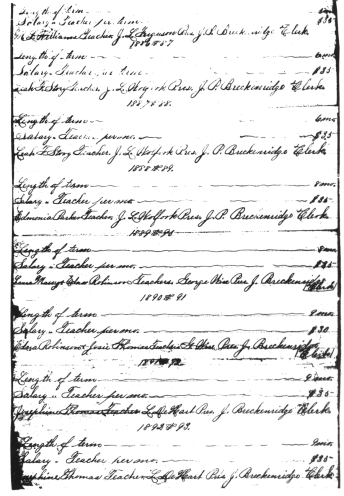 Length of term
Salary - Teacher per term $35
Williams Teacher J. L. Ferguson Pres J. P. Breckenridge Clerk
1886 & 87
Length of term 6 mo
Salary - Teacher per term $35
Leah F. Story Teacher J. L. Wofork Pres. J. P. Breckenridge Clerk
1887 & 88.
Length of term 6 mo
Salary - Teacher, per mo. $35
Leah F. Story Teacher, J. L. Wofork Pres, J. P. Breckenridge, Clerk
1888 & 89.
Length of term 8 mo
Salary - Teacher per mo $35
Edmonia Parker Teacher, J. L. Wofork Pres J. P. Breckenridge Clerk
1889 & 90
Length of term 8 mo
Salary - Teacher per mo. $35
Edna Robinson Teachers George Wise Pres J. Breckenridge
Clerk
1890 & 91
Length of term 8 mo
Salary - Teacher per mo. $30
Edna Robinson & Josie Thomas Teachers G. Wise Pres J. Breckenridge
Clerk
1891 & 92
Length of term 9 mo
Salary - Teacher per mo $35
Josephine Thomas Teacher L. De Hart Pres J. Breckenridge Clerk
1892 & 93.
Length of term 9 mo
Salary - Teacher per mo. $35
Josephine Thomas Teacher L. De Hart Pres J. Breckenridge Clerk